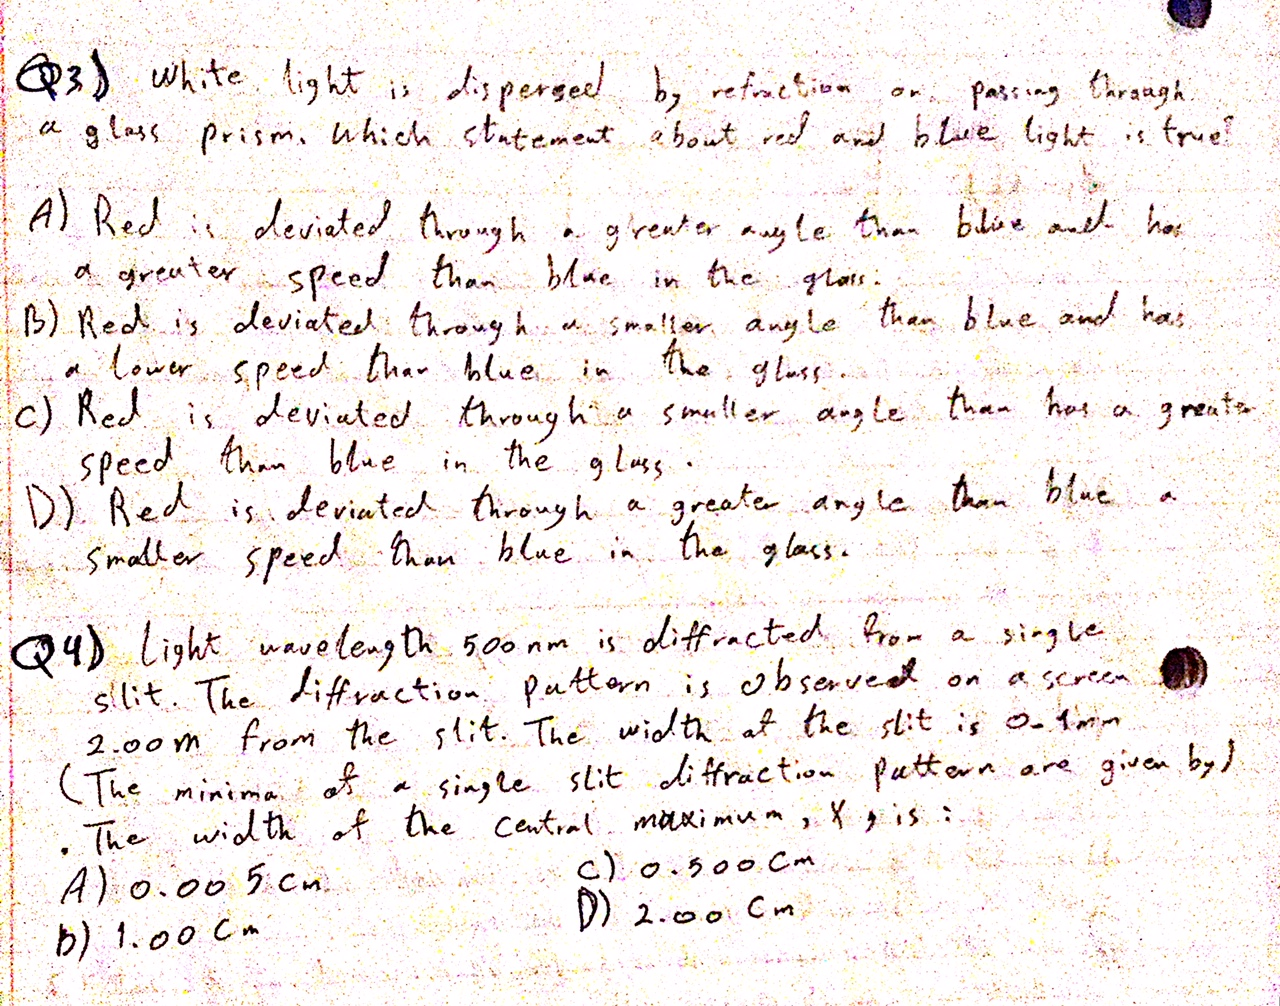 Q3) White light is dispersed by refraction on passing through
a glass prism. Which statement about red and blue light is true?
A) Red is deviated through a greater angle than blue and has
a greater speed than blue in the glass.
B) Red is deviated through a smaller angle than blue and has
a lower speed than blue in the glass.
C) Red is deviated through a smaller angle than has a greater
speed than blue in the glass.
D) Red is deviated through a greater angle than blue a
smaller speed than blue in the glass.
Q4) Light wavelength 500 nm is diffracted from a single
slit. The diffraction pattern is observed on a screen
2.00m from the slit. The width of the slit is 0.1mm
(The minima of a single slit diffraction pattern are given by)
. The width of the central maximum, X, is :
A) 0.005 Cm
C) 0.500 Cm
B) 1.00 Cm
D) 2.00 Cm